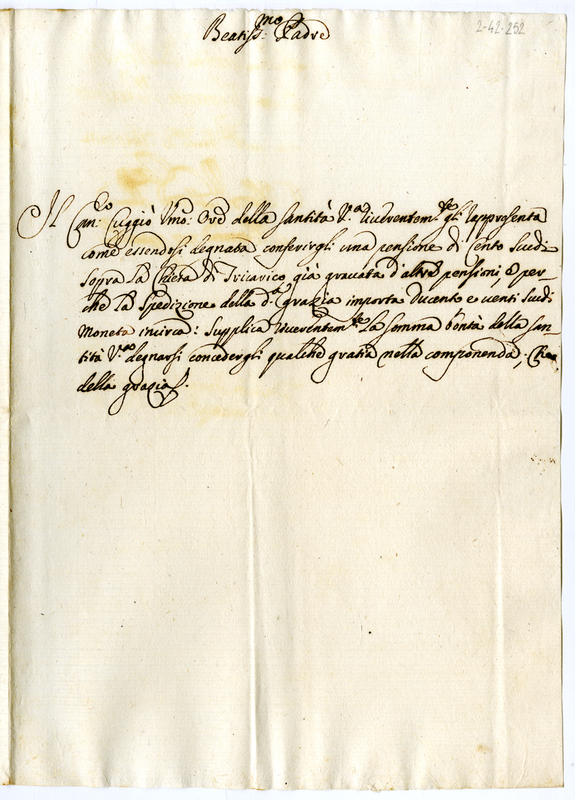 Beatiss:mo Padre
2-42-252
Il Can:co Cuggiò Umo: Ore della Santità V.a riverentem.te gli rappresenta
come essendosi degnata conferirgli una pensione di Cento Scudi
sopra la Chiesa di Tricarico già gravata d'altre pensioni, e per
che la Spedizione della d.a grazia importa Ducento e venti Scudi
Moneta incirca: Supplica riverentem.te la somma bontà della San
tità V.ra degnarsi concedergli qualche gratia nella componenda, Che
della grazia